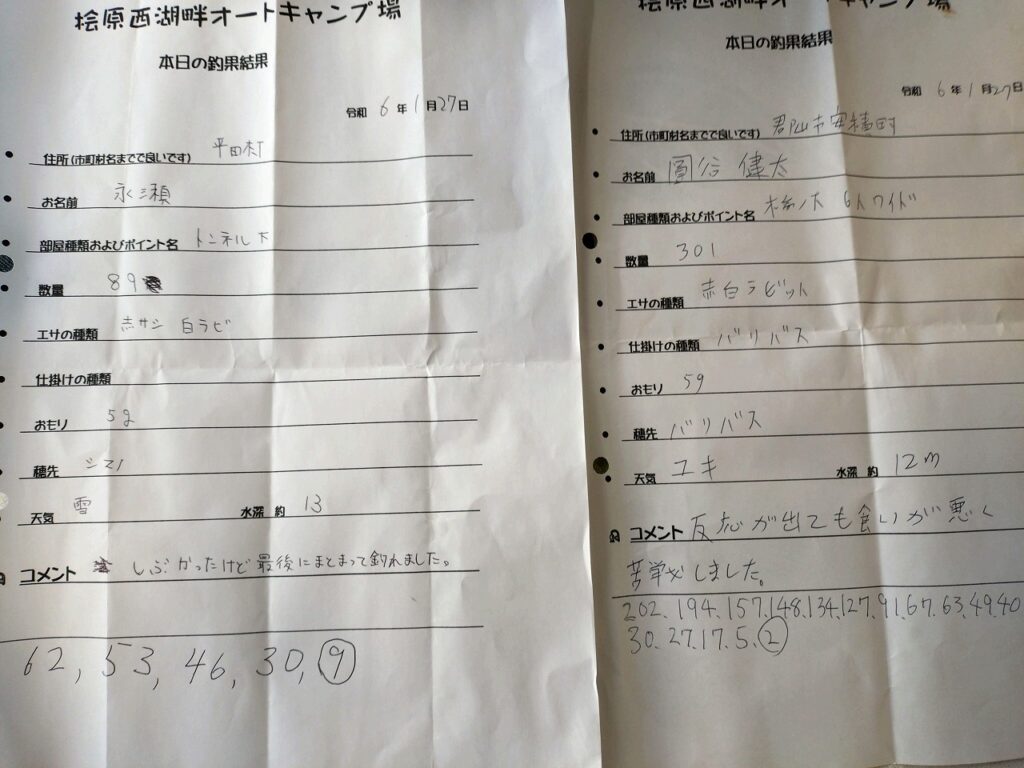 桧原西湖畔オートキャンプ場
本日の釣果結果
令和 6 年 1 月 27 日
住所(市町村名までで良いです) 平田村
お名前 永瀬
部屋種類およびポイント名 トンネル大
数量 89
エサの種類 赤サシ 白ラビ
仕掛けの種類
おもり 5g
穂先 シマノ
天気 雪 水深 約 13
コメント しぶかったけど最後にまとまって釣れました。
62, 53, 46, 30, 9
桧原西湖畔オートキャンプ場
本日の釣果結果
令和 6 年 1 月 27 日
住所(市町村名までで良いです) 郡山市安積町
お名前 圓谷 健太
部屋種類およびポイント名 6人ワイド
数量 301
エサの種類 赤白ラビット
仕掛けの種類 バリバス
おもり 5g
穂先 バリバス
天気 ユキ 水深 約 12m
コメント 反応が出ても食いが悪く
しました。
202.194.157.148.134.127.91.67.63.49.40
30.27.17.5.2